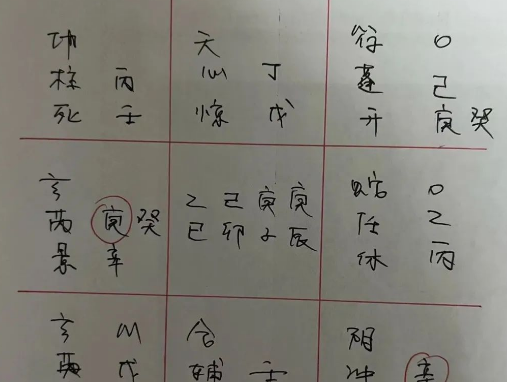 天 符 O
柱 丙 心 丁 蓬 己
死 壬 惊 戊 开 庚 癸
玄 乙 己 庚 庚 蛇 O
芮 庚 癸 巳 卯 子 辰 任 乙
景 辛 休 丙
玄 M 合 阴
戊 辅 壬 冲 辛